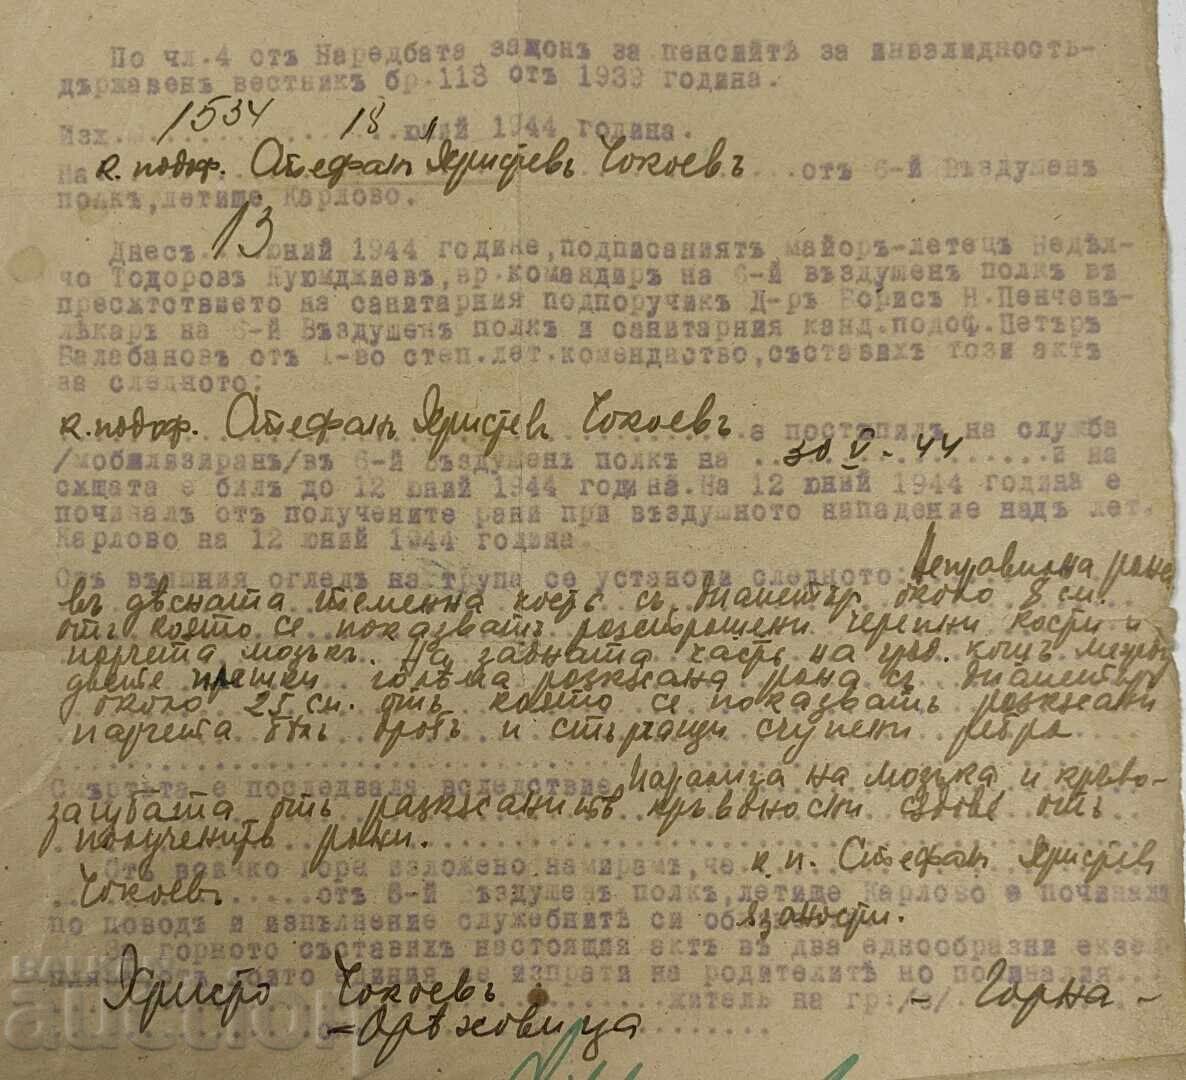 По чл.4 отъ Наредбата законъ за пенсиитѣ за инвалидность-
държавенъ вестникъ бр.113 отъ 1939 година.
Изх. 1534 18 юний 1944 година.
На к. подоф. Стефанъ Христевъ Чокоевъ отъ 6-й Въздушенъ
полкъ,летище Карлово.
Днесъ 13 юний 1944 година,подписаниятъ майоръ-летецъ Недѣл-
чо Тодоровъ Куюмджиевъ,вр.командиръ на 6-й въздушенъ полкъ въ
пресѫтствието на санитарния подпоручикъ Д-ръ Борисъ Н.Пенчевъ-
лѣкаръ на 6-й Въздушенъ полкъ и санитарния канд.подоф.Петъръ
Балабановъ отъ 1-во степ.лет.комендаство,съставихъ този актъ
за следното:
к. подоф. Стефанъ Христевъ Чокоевъ е постъпилъ на служба
/мобилизиранъ/въ 6-й Въздушенъ полкъ на 30 V - 44 и на
сѫщата е билъ до 12 юний 1944 година.На 12 юний 1944 година е
починалъ отъ получените рани при въздушното нападение надъ лет.
Карлово на 12 юний 1944 година.
Отъ външния огледъ на трупа се установи следното: Неправилна рана
въ дѣсната теменна кость съ диаметъръ около 8 см.
отъ която се показватъ разтрошени черепни кости и
парчета мозъкъ. На задната часть на грѫд. кошъ между
двете плешки голѣма разкѫсана рана съ диаметъръ
около 25 см. отъ която се показватъ разкѫсани
парчета бѣлъ дробъ и стърчащи счупени ребра
Смъртьта е последвала вследствие Парализа на мозъка и крьво-
загубата отъ разкѫсанитѣ кръвоносни сѫдове отъ
полученитѣ рани.
Отъ всичко горе изложено намирамъ,че к. п. Стефанъ Христевъ
Чокоевъ отъ 6-й Въздушенъ полкъ,летище Карлово е починалъ
по поводъ и изпълнение служебнитѣ си обязаности.
За горното съставихъ настоящия актъ въ два еднообразни екзем
пляра отъ които единия се изпрати на родителитѣ но починалия
Христо Чокоевъ житель на гр:/-/ - Горна -
- Орѣховица